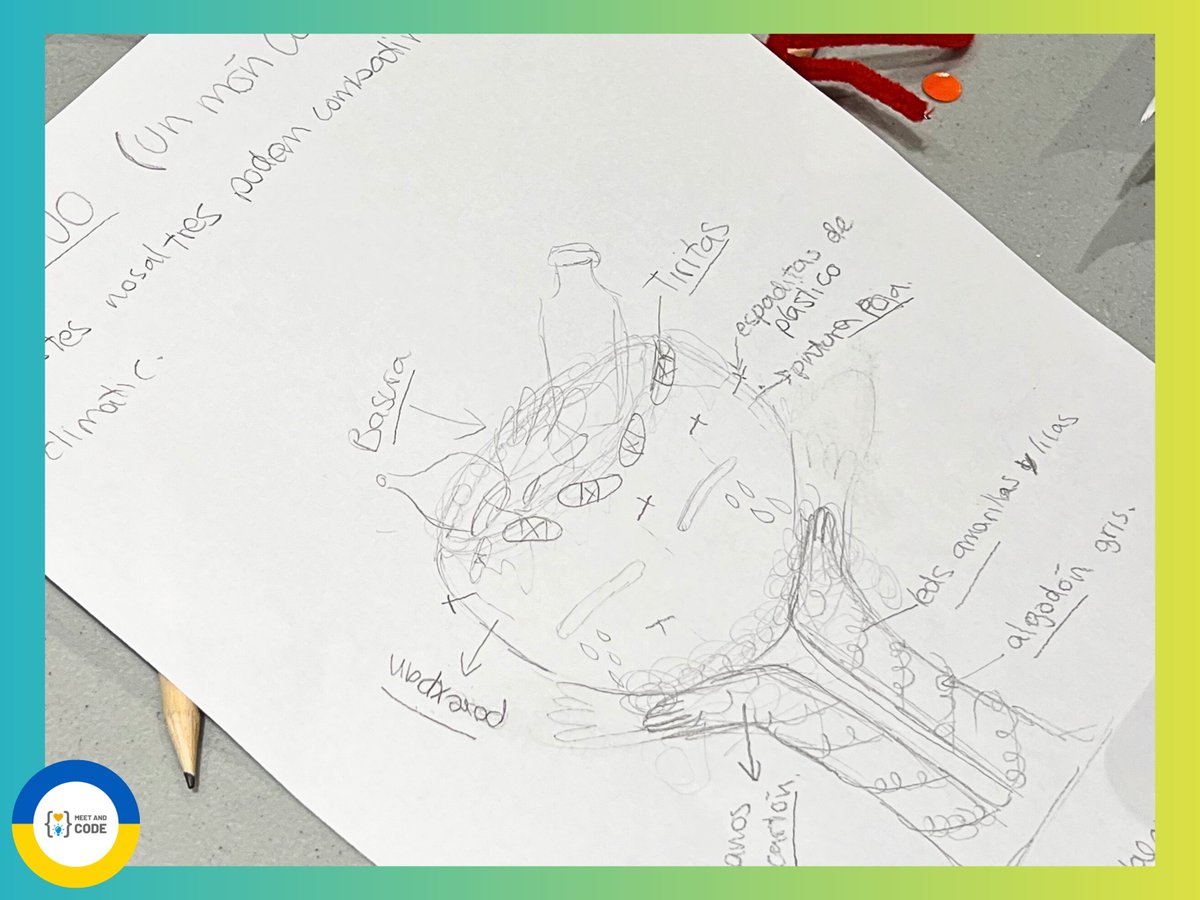 (un món
nosaltres podem combatir
climàtic.
Tiritas
espaditas de
plástico
pintura roja.
Basura
leds amarillas y lilas
algodón gris.
porexpan
cartón.
MEET AND
CODE